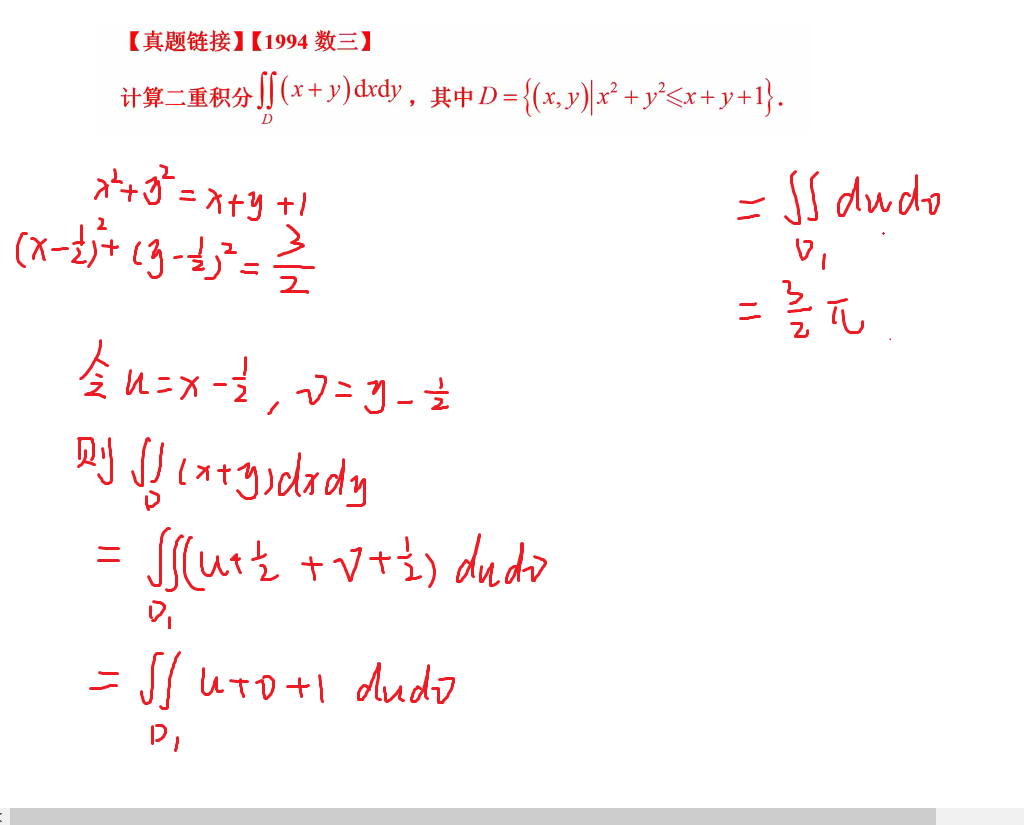 【真题链接】【1994 数三】
计算二重积分∬_D (x+y)dxdy，其中 D={(x,y)|x²+y²⩽x+y+1}.
x²+y²=x+y+1
(x-1/2)²+(y-1/2)²=3/2
令 u=x-1/2, v=y-1/2
则 ∬_D (x+y)dxdy
=∬_D₁ (u+1/2+v+1/2) dudv
=∬_D₁ u+v+1 dudv
=∬_D₁ dudv
=3/2 π